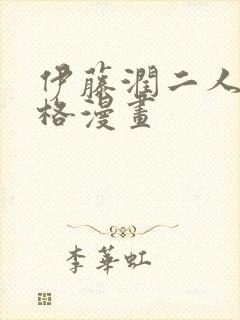 伊藤潤二人
格漫畫
李華虹